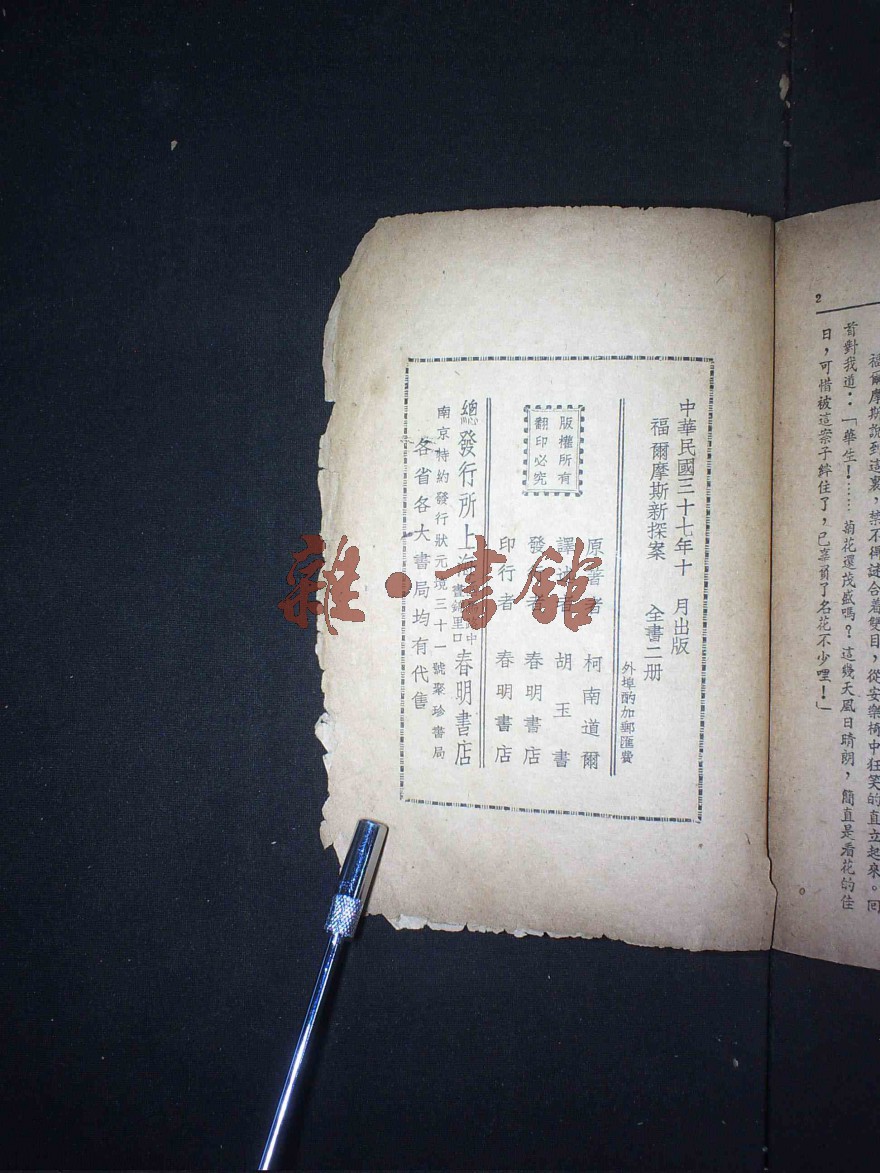 2
福爾摩斯說到這裏,禁不得
合着雙目,從安樂椅中狂笑的直立起來。回
首對我道:「華生!……菊花還茂盛嗎?這幾天風日晴朗,簡直是看花的佳
日,可惜被這案子絆住了,已辜負了名花不少哩!」
中華民國三十七年十 月出版
福爾摩斯新探案 全書二册
外埠酌加郵匯費
版權所有
翻印必究
原著者 柯南道爾
譯述者 胡玉書
發行者 春明書店
印行者 春明書店
總發行所上海 中
畫錦里口
春明書店
南京特約發行狀元境三十一號聚珍書局
各省各大書局均有代售
雜·書館